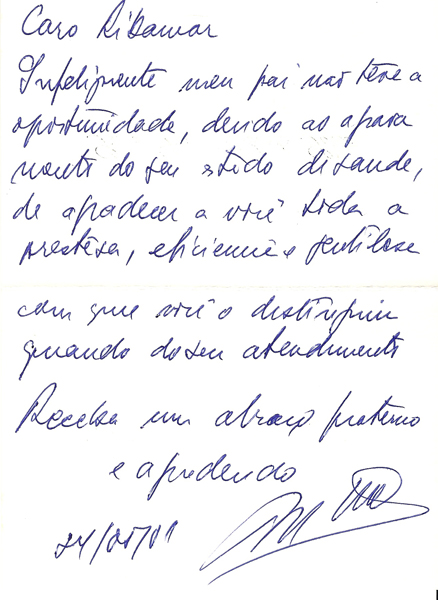 Caro Ribamar
Infelizmente meu pai não teve a
oportunidade, devido ao agrava
mento do seu estado de saúde,
de agradecer a você toda a
presteza, eficiência e gentileza
com que você o distinguiu
quando do seu atendimento
Receba um abraço fraterno
e agradecido
24/05/01